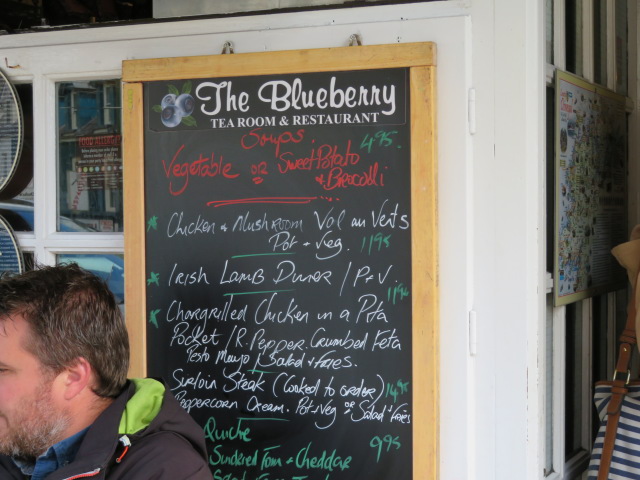 The Blueberry
TEA ROOM & RESTAURANT
Soups. 4.95.
Vegetable OR Sweet Potato
+ Brocolli
Chicken & Mushroom Vol au Vents
Pot + Veg. 11.95
Irish Lamb Dinner / P+V.
11.95
Chargrilled Chicken in a Pita
Pocket / R. Pepper. Crumbed Feta
Pesto Mayo / Salad + Fries.
Sirloin Steak (Cooked to order) 14.95
Peppercorn Cream. Pot + Veg or Salad + Fries
Quiche
Sundried Tom + Cheddar 9.95